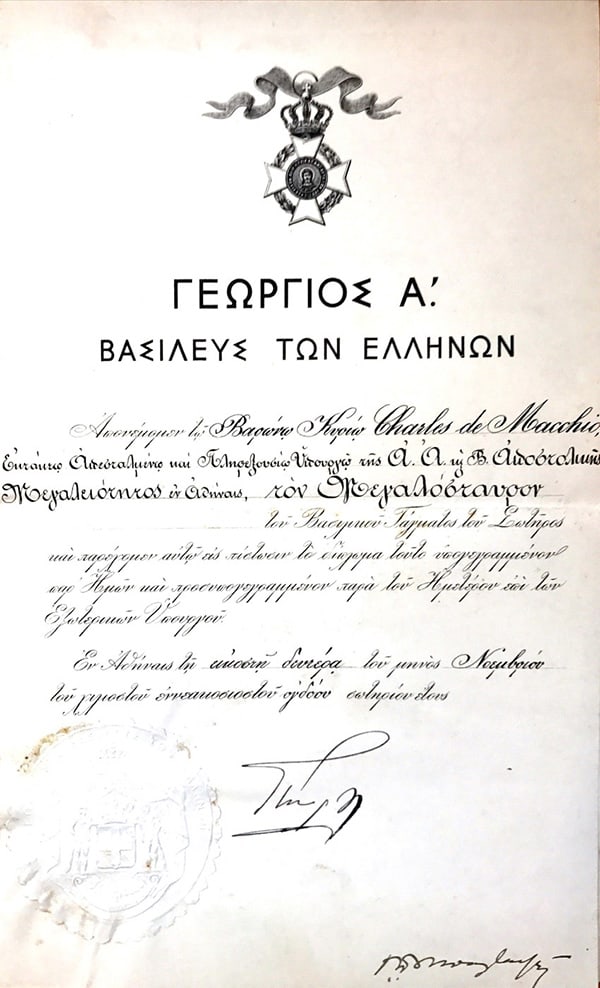 ΓΕΩΡΓΙΟΣ Α.′
ΒΑΣΙΛΕΥΣ ΤΩΝ ΕΛΛΗΝΩΝ
Ἀπονέμομεν τῷ Βαρώνῳ Κυρίῳ Charles de Macchio,
Ἐκτάκτῳ Ἀπεσταλμένῳ καὶ Πληρεξουσίῳ Ὑπουργῷ τῆς Α. Α. κ Β. Ἀποστολικῆς
Μεγαλειότητος ἐν Ἀθήναις, τὸν Μεγαλόσταυρον
τοῦ Βασιλικοῦ Τάγματος τοῦ Σωτῆρος
καὶ παρέχομεν αὐτῷ εἰς πίστωσιν τὸ δίπλωμα τοῦτο ὑπογεγραμμένον
παρ' Ἡμῶν καὶ προσυπογεγραμμένον παρὰ τοῦ Ἡμετέρου ἐπὶ τῶν
Ἐξωτερικῶν Ὑπουργοῦ.
Ἐν Ἀθήναις τῇ εἰκοστῇ δευτέρᾳ τοῦ μηνὸς Νοεμβρίου
τοῦ χιλιοστοῦ ἐννεακοσιοστοῦ ὀγδόου σωτηρίου ἔτους